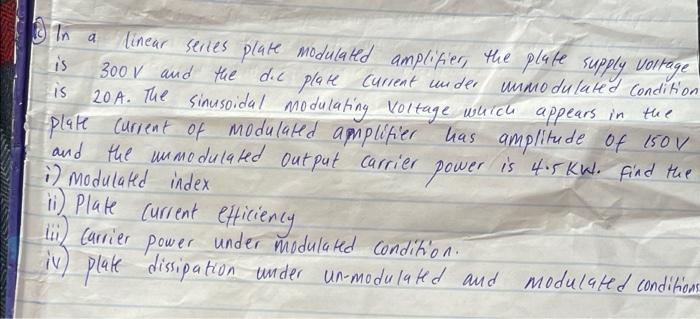 c) In a linear series plate modulated amplifier, the plate supply voltage
is 300V and the d.c plate current under unmodulated condition
is 20A. The sinusoidal modulating voltage which appears in the
plate current of modulated amplifier has amplitude of 150V
and the unmodulated output carrier power is 4.5KW. Find the
i) modulated index
ii) Plate current efficiency
iii) carrier power under modulated condition.
iv) plate dissipation under un-modulated and modulated conditions